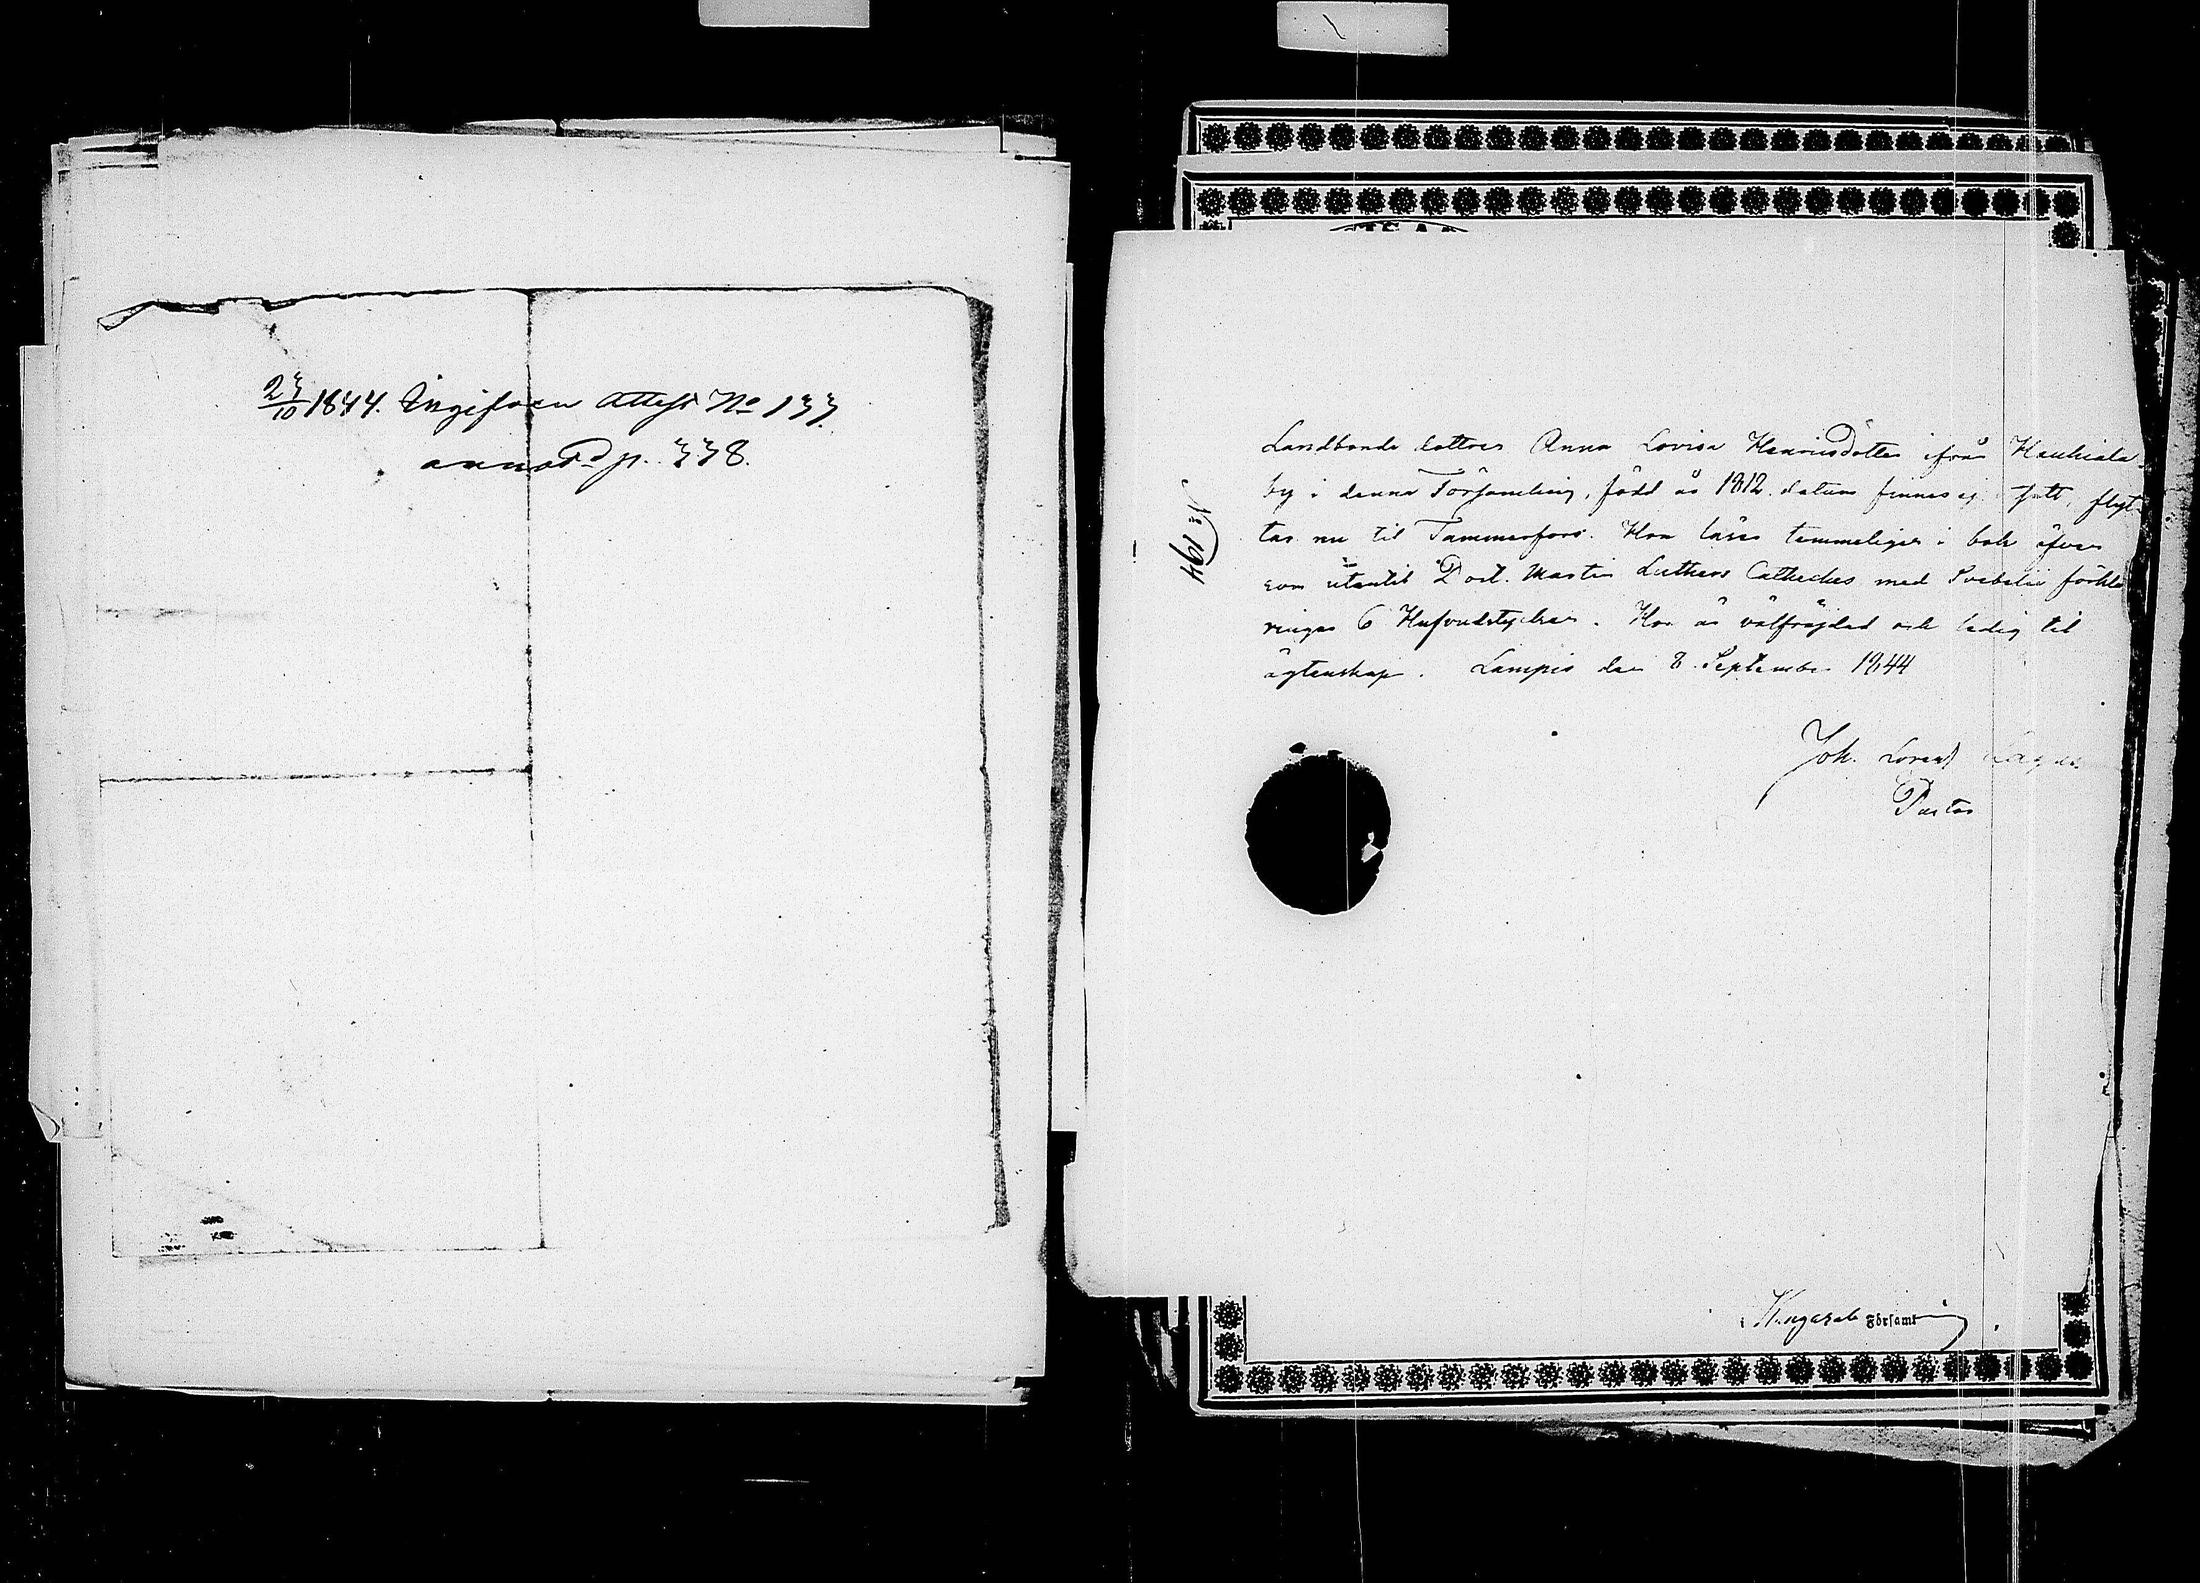 23/10 1844. Ingifven Attest No 133
annot. p. 338.
No 194
Landbonde dottren Anna Lovisa Henricsdotter ifrån Kauhiala
by i denna Församling, född år 1812. datum finnes ej, flyt-
tar nu til Tammerfors. Hon läser temmeligen i bok äfven
som utantil Doct. Martin Luthers Catheches med Svebelii förkla
ringar 6 Hufvudstycken. Hon är välfrejdad och ledig til
ägtenskap. Lampis den 8 September 1844
Joh. Lorentz
Pastor
Kangasala Församl